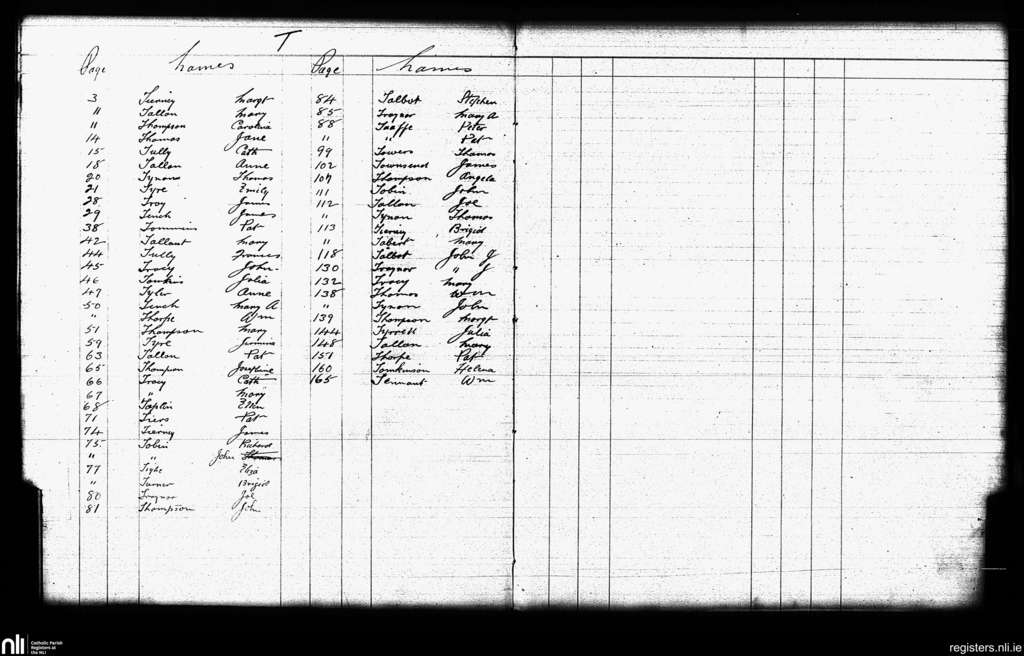 T
Page Names
3 Tierney Margt
" Tallon Mary
" Thompson Carolina
14 Thomas Jane
15 Tully Cath
18 Tallon Anne
20 Tynons Thomas
21 Tyre Emily
28 Troy James
29 Tench James
38 Tommins Pat
42 Tallant Mary
44 Tully Frances
45 Tracy John
46 Tonkins Julia
47 Tyler Anne
50 Tench Mary A
" Thorpe Wm
51 Thompson Mary
59 Tyre Jemima
63 Tallon Pat
65 Thompson Josephine
66 Tracy Cath
67 " Mary
68 Taplin Ellen
71 Tiers Pat
74 Tierney James
75 Tobin Richard
" " John Thomas
77 Tighe Eliza
" Turner Brigid
80 Traynor Jos
81 Thompson John
Page Names
84 Talbot Stephen
85 Traynor Mary A
88 Taaffe Peter
" " Pat
99 Towers Thomas
102 Townsend James
107 Thompson Angela
111 Tobin John
112 Tallon Joe
" Tynon Thomas
113 Tierny Brigid
" Tabert Mary
118 Talbot John J
130 Traynor " J
132 Tracy Mary
138 Thomas Wm
" Tynon John
139 Thompson Margt
144 Tyrrell Julia
148 Tallon Mary
151 Thorpe Pat
160 Tomkinson Helena
165 Tennant Wm
nli
Catholic Parish
Registers at
the NLI
registers.nli.ie